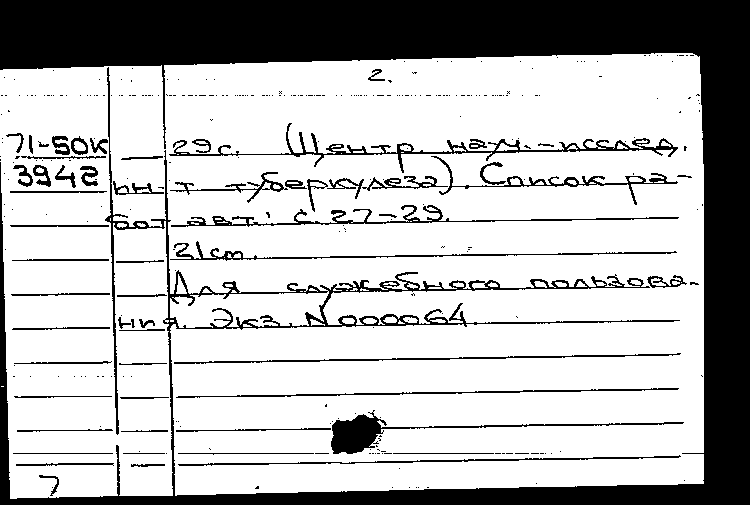 2.
71-50К 29с. (Центр. науч.-исслед.
3942 ин-т туберкулеза). Список ра-
бот авт.: с. 27-29.
21 cm.
Для служебного пользова-
ния. Экз. N 000064.
7